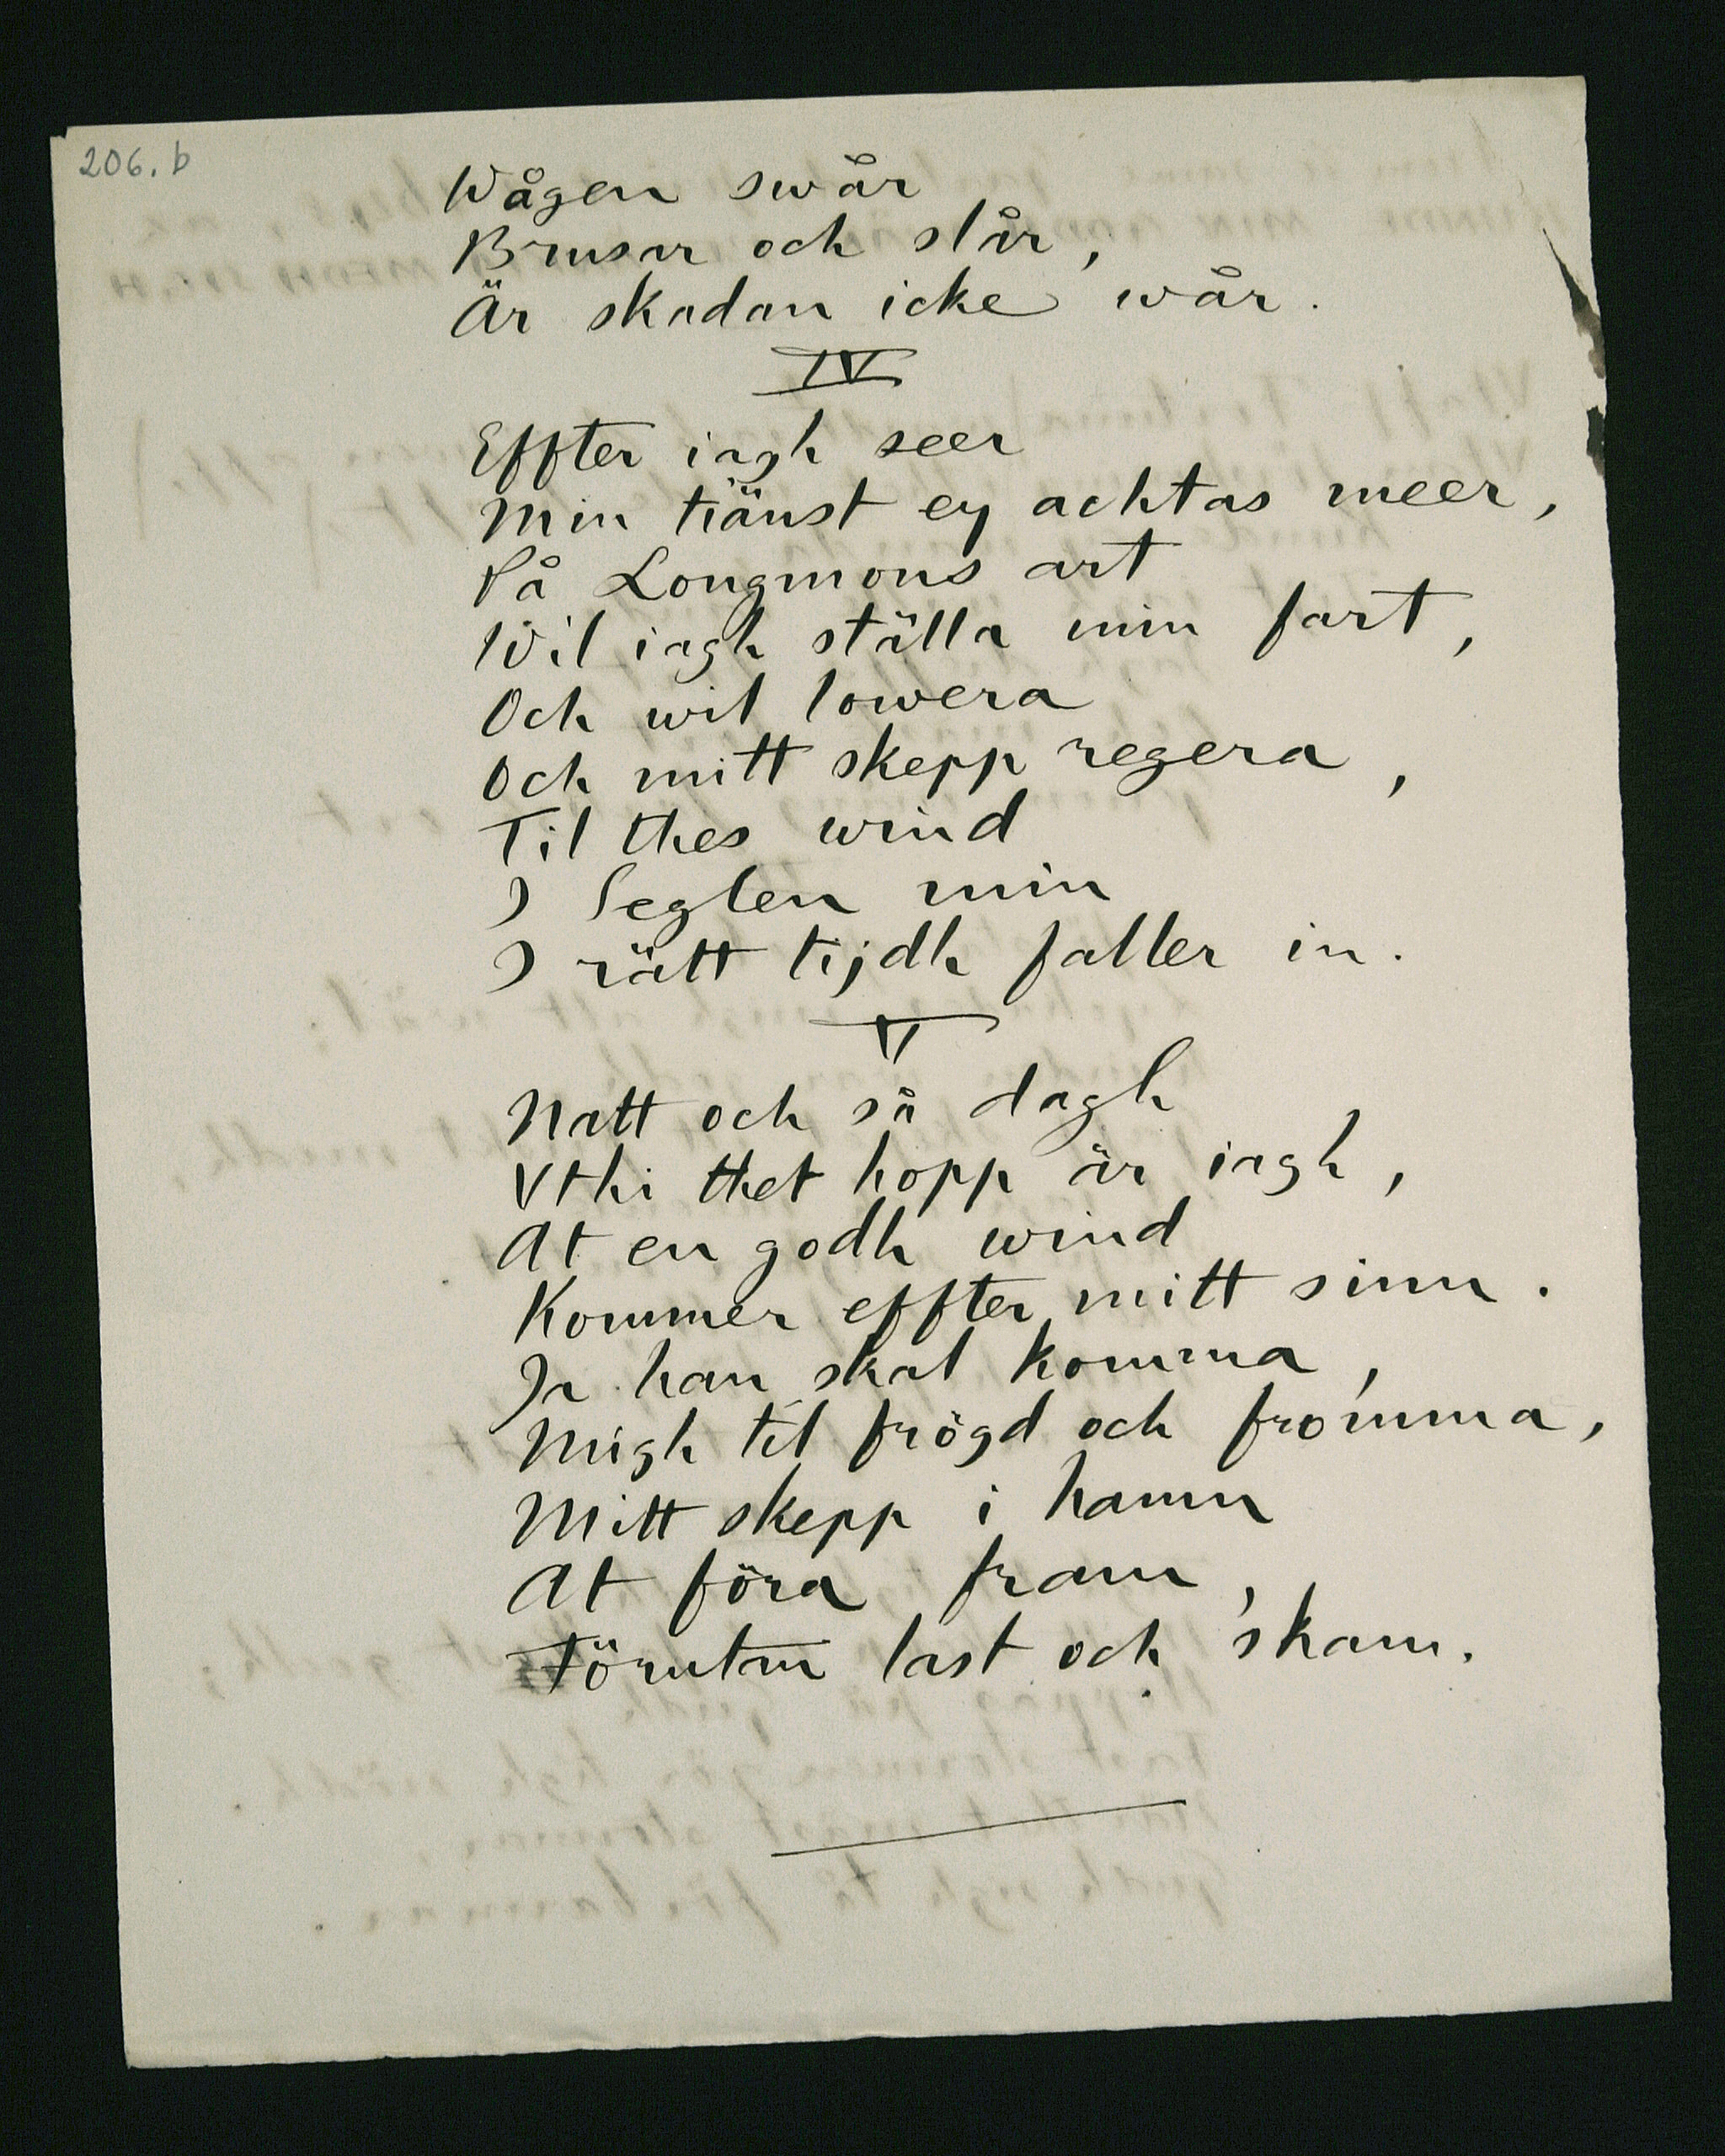 206. b
Wågen swår
Brusar och slår,
Är skadan icke wår.
IV
Effter iagh seer
Min tiänst ey achtas meer,
På Longmons art
Wil iagh ställa min fart,
Och wil lowera
Och mitt skepp regera,
Til thes wind
I Seglen min
I rätt tijdh faller in.
V
Natt och så dagh
Vthi thet hopp är iagh,
At en godh wind
Kommer effter mitt sinn.
Ja han skal komma,
Migh til frögd och fromma,
Mitt skepp i hamn
At föra fram,
Förutan last och skam.